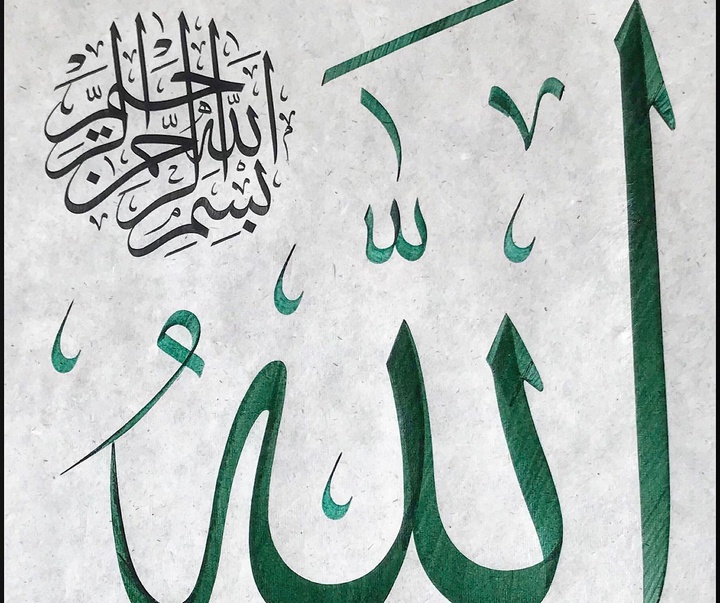 بسم الله الرحمن الرحيم
اللّٰهُ